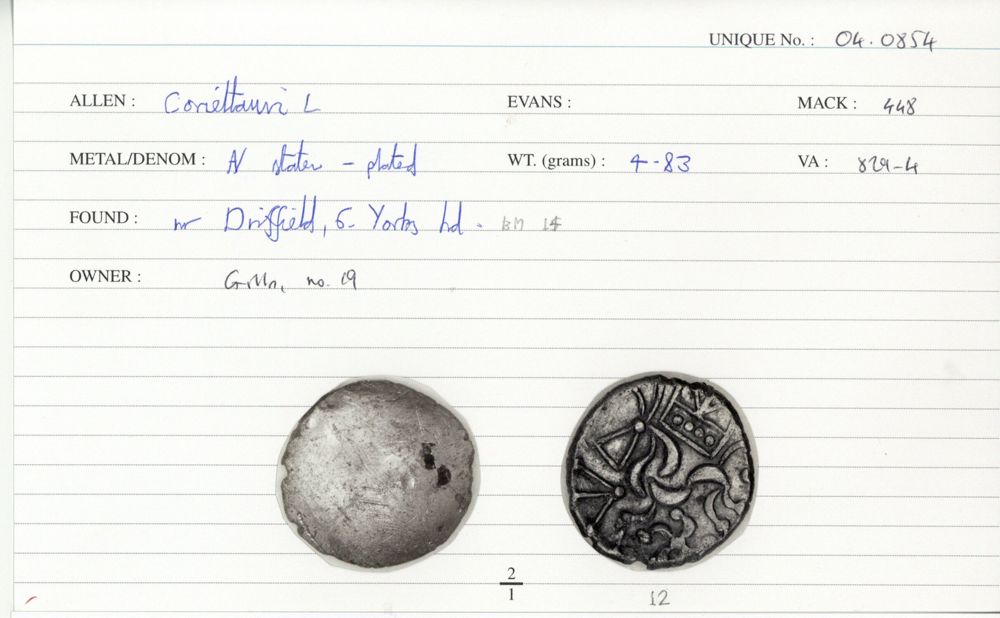 UNIQUE No. : 04.0854
ALLEN : Corieltauvi L EVANS : MACK : 448
METAL/DENOM : N stater - plated WT. (grams) : 4-83 VA : 829-4
FOUND : nr Driffield, E. Yorks BM 14
OWNER : no. 19
2
1
12